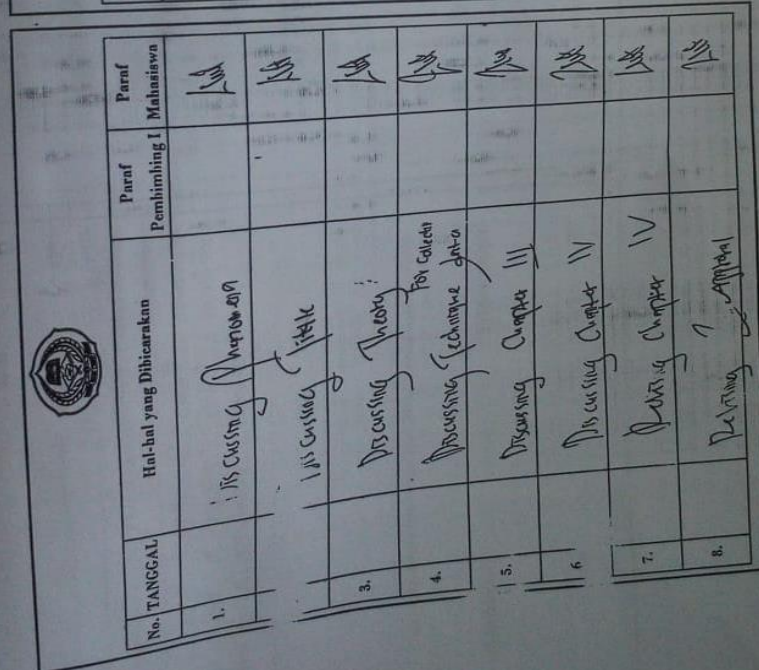 No. TANGGAL Hal-hal yang Dibicarakan Paraf Pembimbing I Paraf Mahasiswa
1. Discussing Phenomena
Discussing Tittle
3. Discussing Theory
4. Discussing Technique For Collecti data
5. Discussing Chapter III
6 Discussing Chapter IV
7. Revising Chapter IV
8. Approval